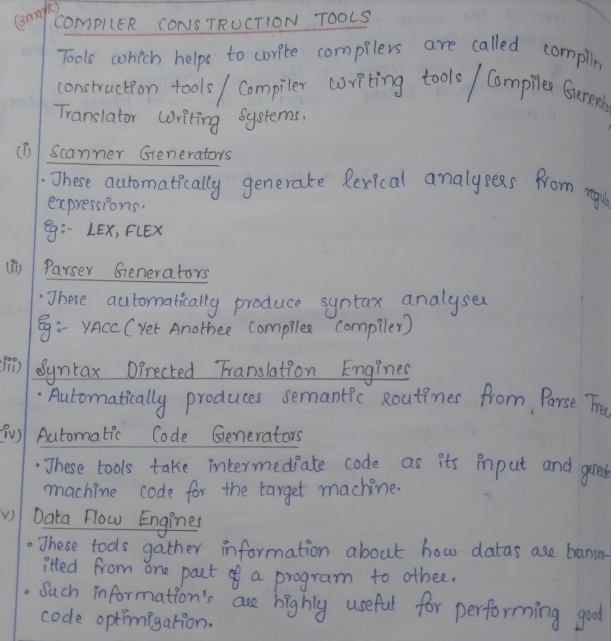 (3mark)
COMPILER CONSTRUCTION TOOLS
Tools which helps to write compilers are called compiler
construction tools / Compiler writing tools / Compiler Generator
Translator Writing Systems.
(i) Scanner Generators
• These automatically generate lexical analysers from regula
expressions.
Eg:- LEX, FLEX
(ii) Parser Generators
• These automatically produce syntax analyser
Eg:- YACC (Yet Another Compiler Compiler)
(iii) Syntax Directed Translation Engines
• Automatically produces semantic routines from Parse Tree
(iv) Automatic Code Generators
• These tools take intermediate code as its input and generate
machine code for the target machine.
v) Data Flow Engines
• These tools gather information about how datas are transm-
itted from one part of a program to other.
• Such information's are highly useful for performing good
code optimization.